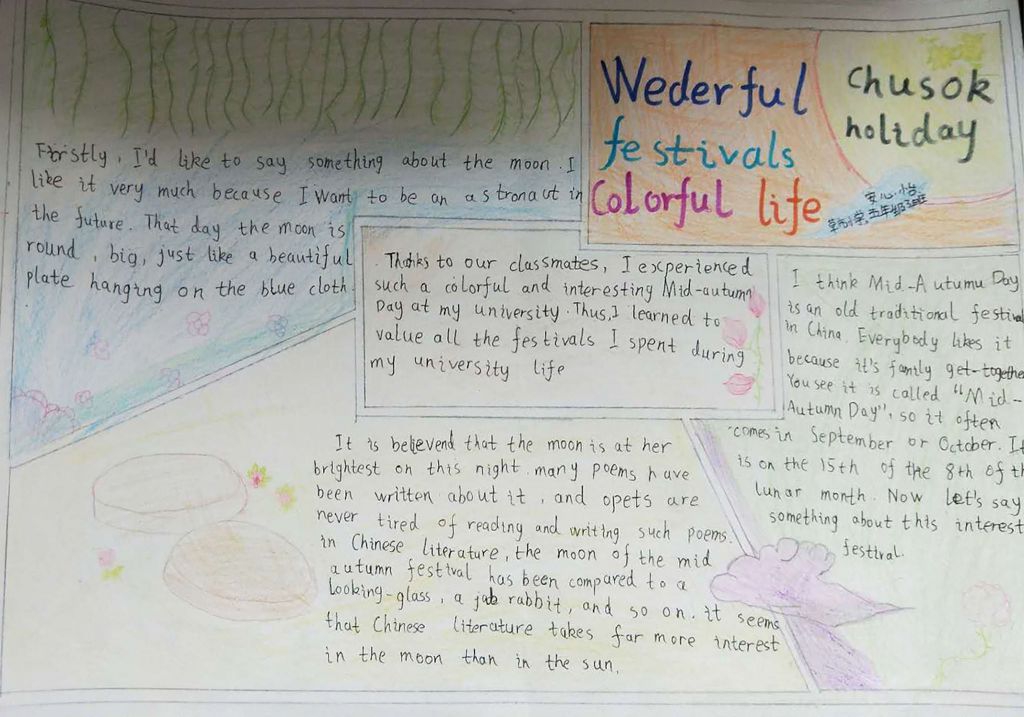 Wederful
festivals
Colorful life
Chusok
holiday
安心怡
五年级3班
Firstly, I'd like to say something about the moon. I
like it very much because I want to be an astronaut in
the future. That day the moon is
round, big, just like a beautiful
plate hanging on the blue cloth.
Thanks to our classmates, I experienced
such a colorful and interesting Mid-autumn
Day at my university. Thus, I learned to
value all the festivals I spent during
my university life
I think Mid-Autumu Day
is an old traditional festival
in China. Everybody likes it
because it's family get-together
You see it is called "Mid-
Autumn Day", so it often
comes in September or October. It
is on the 15th of the 8th of th
lunar month. Now let's say
something about this interest
festival.
It is believend that the moon is at her
brightest on this night. many poems have
been written about it, and opets are
never tired of reading and writing such poems.
in Chinese literature, the moon of the mid
autumn festival has been compared to a
looking-glass, a jab rabbit, and so on. it seems
that Chinese literature takes far more interest
in the moon than in the sun.